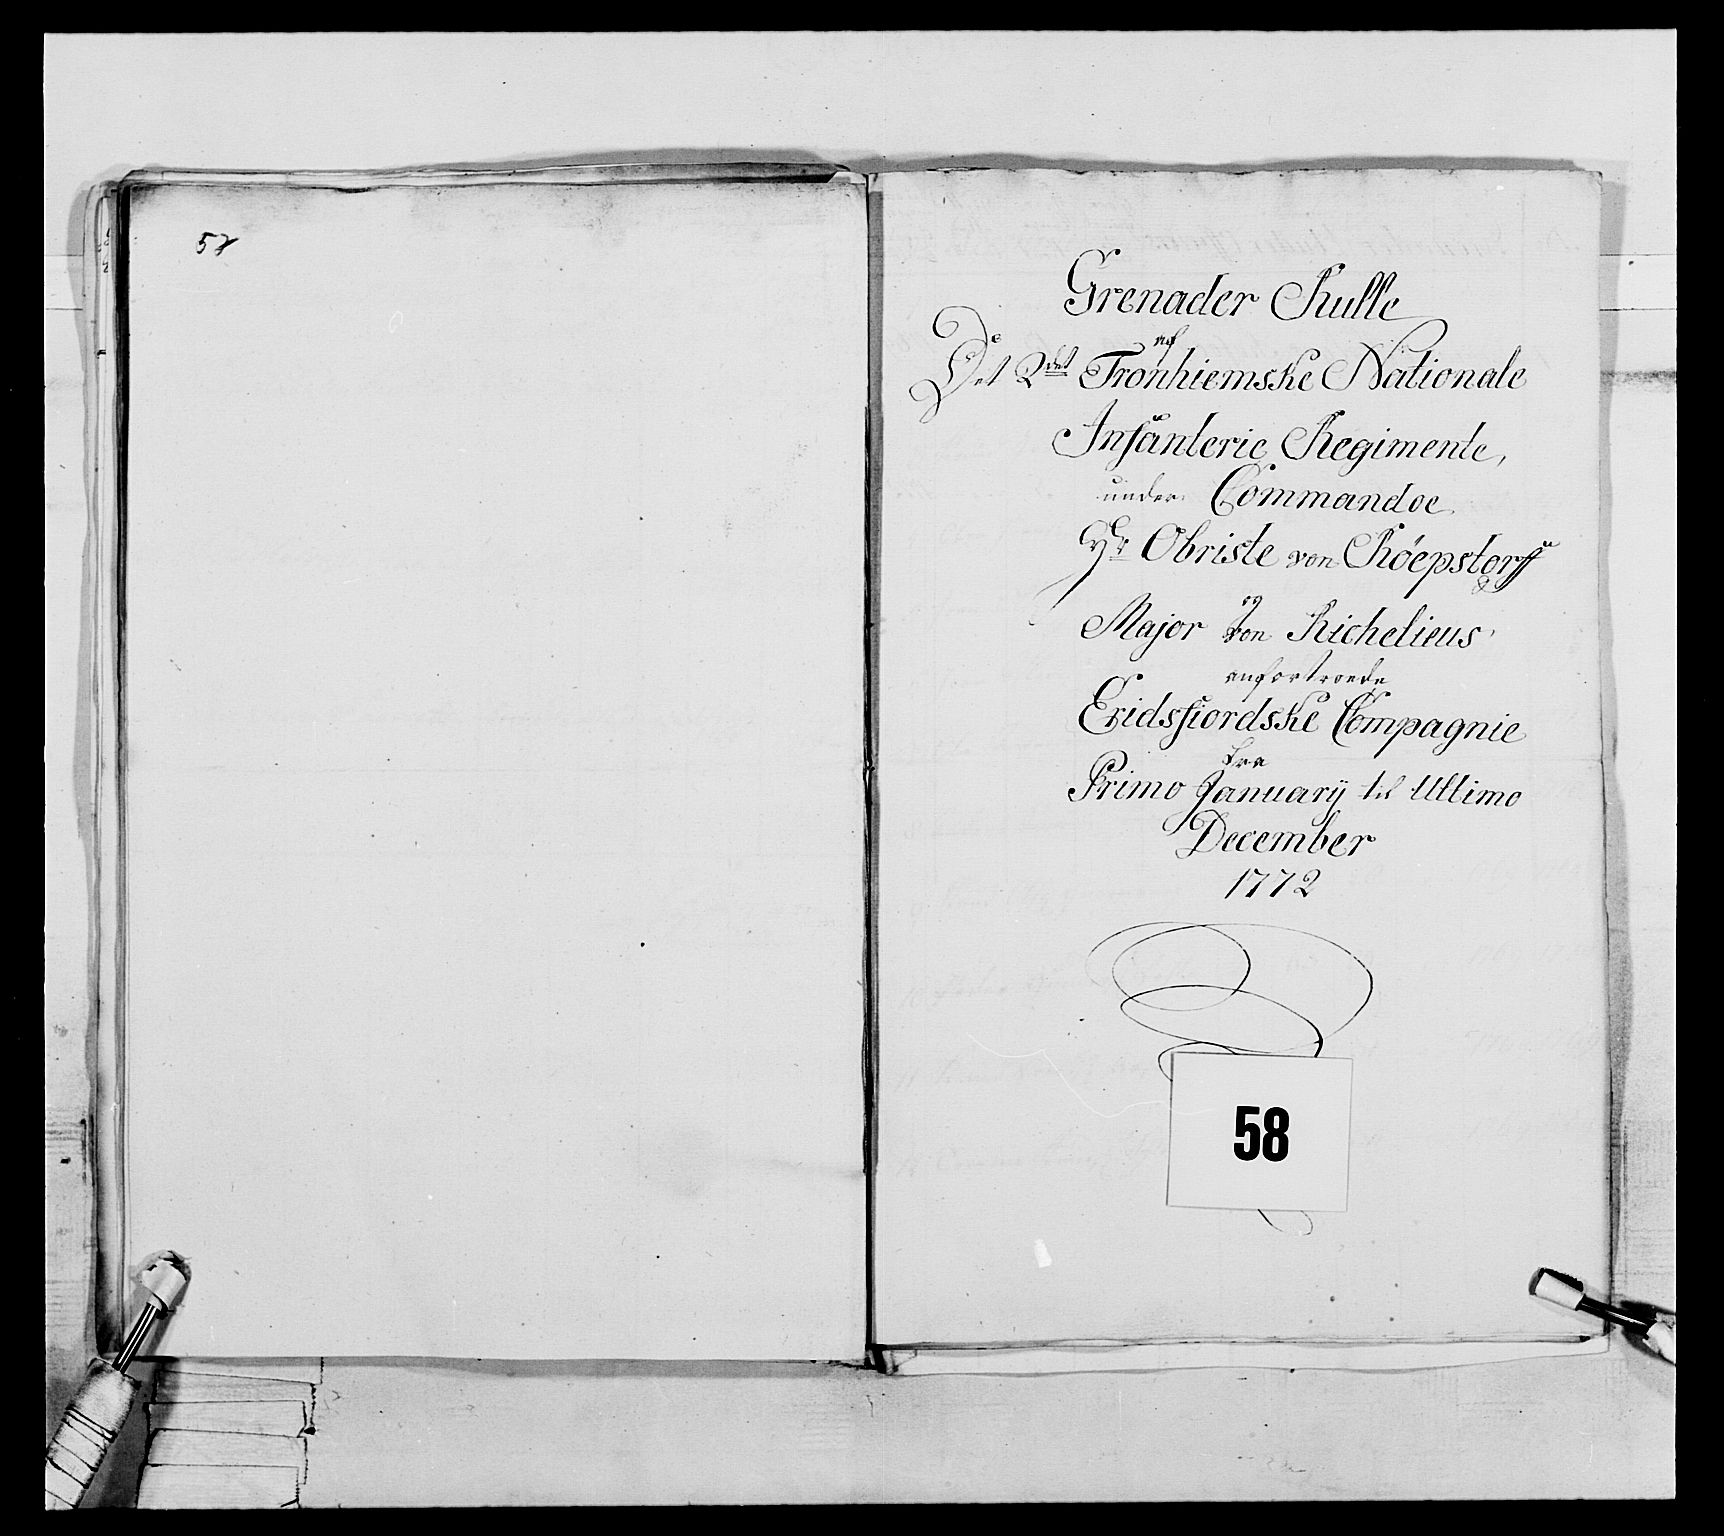 57
Grenader Rulle
af
Det 2det Tronhiemske Nationale
Infanterie Regimente,
under Commandoe
Hr Obriste von Röepstorff
og
Major von Richelieus
anfortroede
Eridsfiordske Compagnie
fra
Primo Januarÿ til Ultimo
December
1772
58